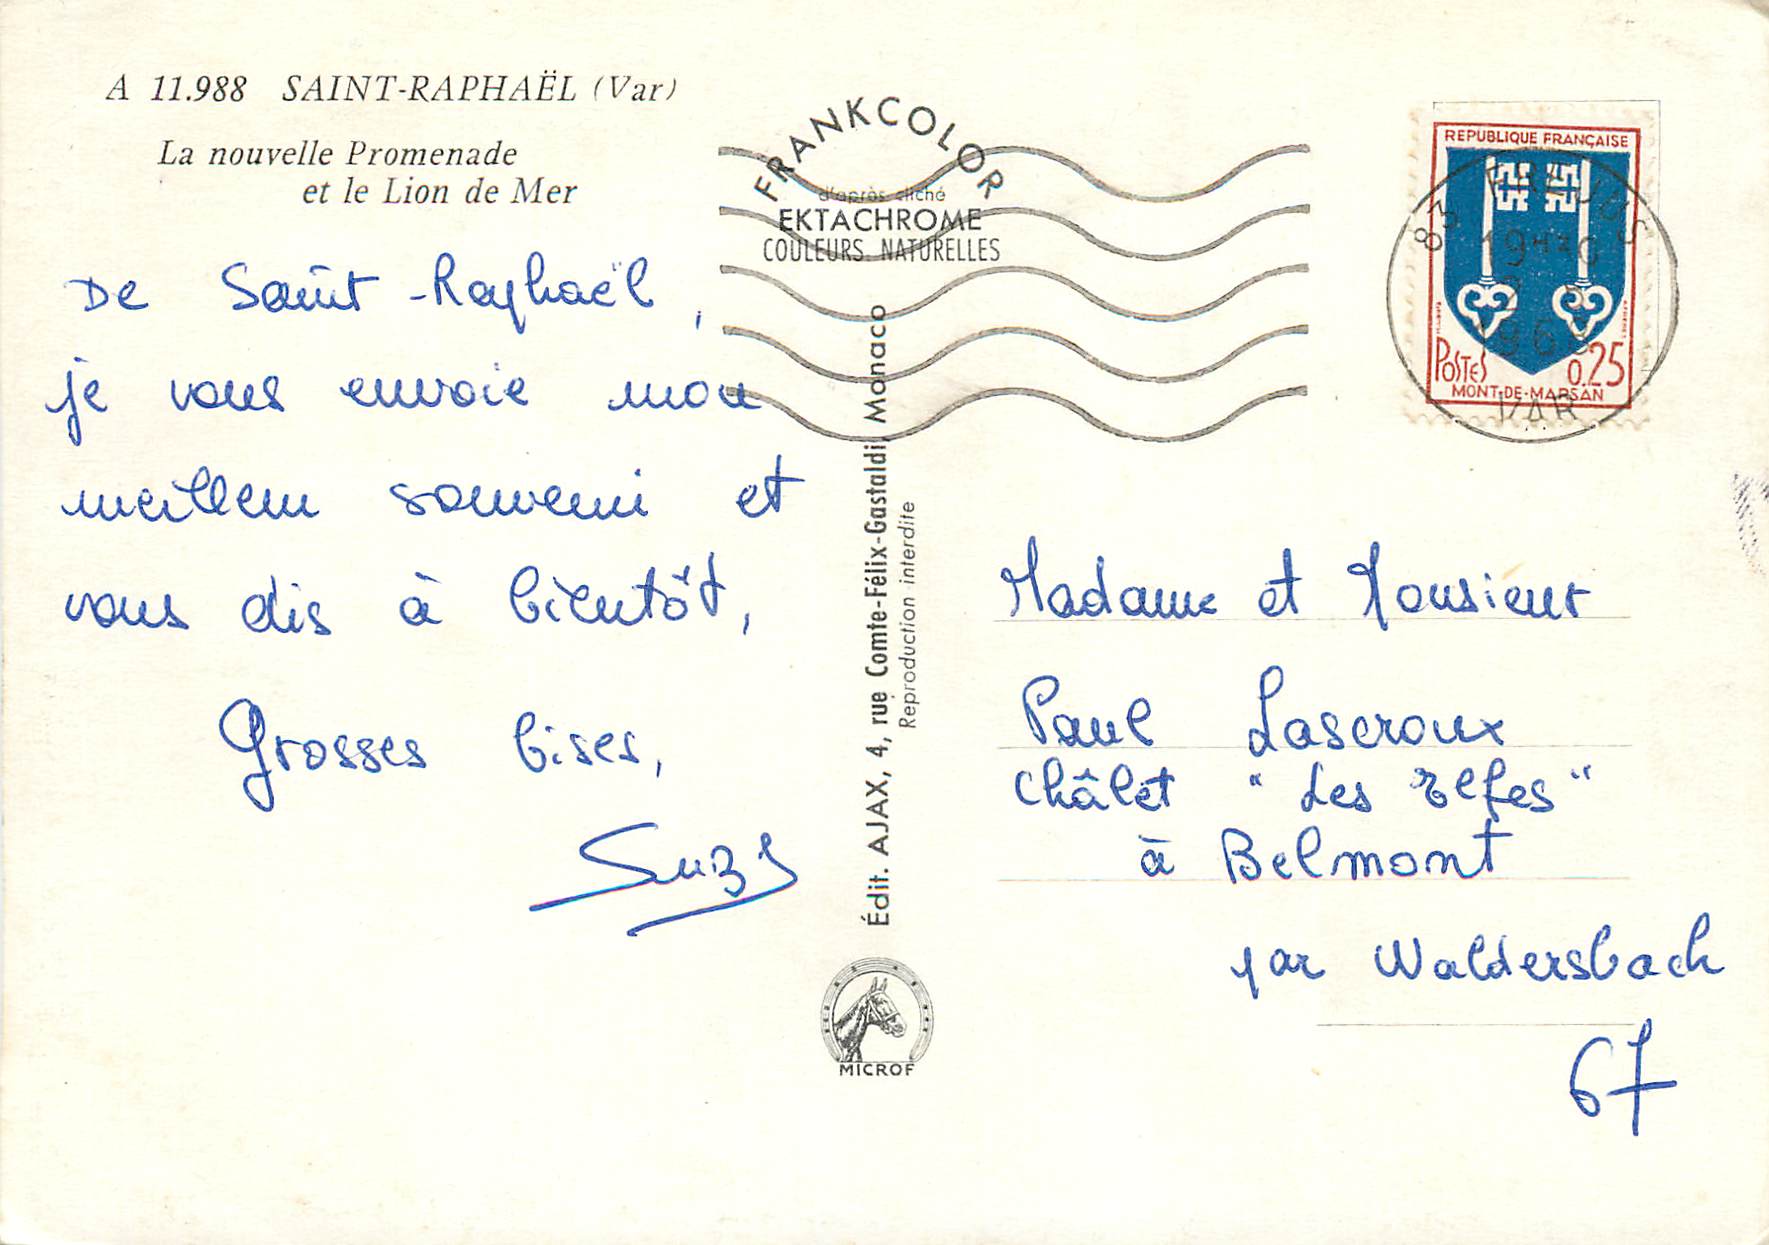 A 11.988 SAINT-RAPHAËL (Var)
La nouvelle Promenade
et le Lion de Mer
De Saint-Raphaël,
je vous envoie mon
meilleur souvenir et
vous dis à bientôt,
Grosses bises,
Suzy
FRANKCOLOR
d'après cliché
EKTACHROME
COULEURS NATURELLES
Édit. AJAX, 4, rue Comte-Félix-Gastaldi, Monaco
Reproduction interdite
MICROF
REPUBLIQUE FRANÇAISE
POSTES
0,25
MONT-DE-MARSAN
83 FREJUS
VAR
Madame et Monsieur
Paul Lascroux
Châlet "Les Elfes"
à Belmont
par Waldersbach
67